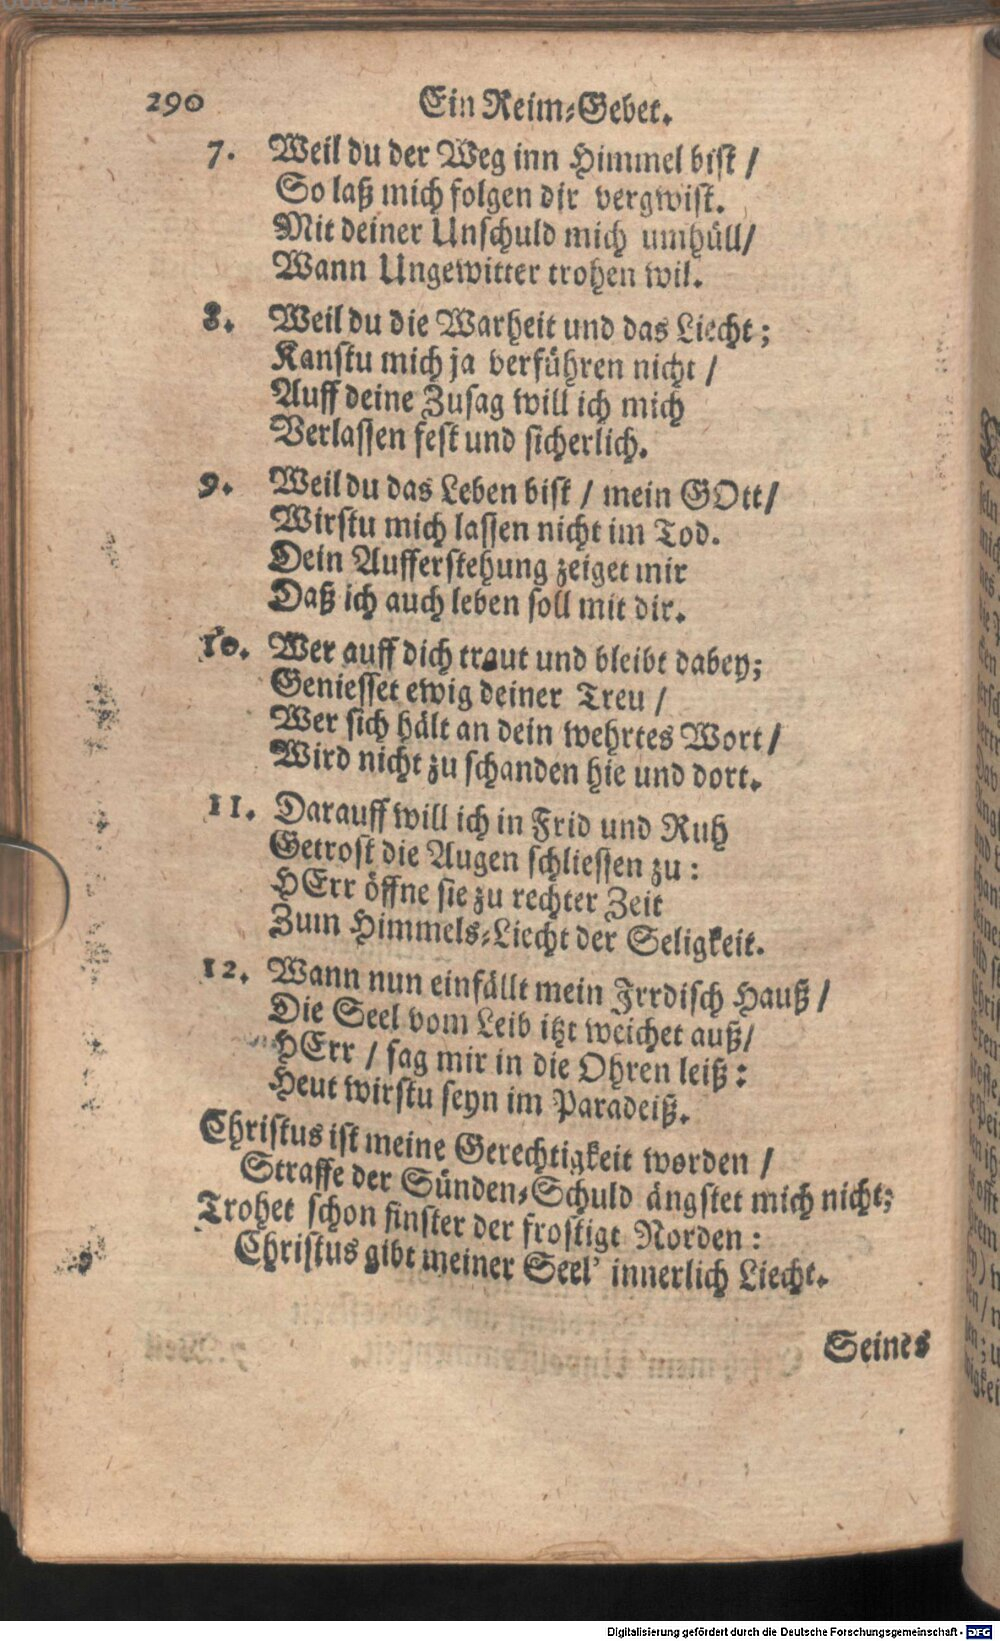 290 Ein Reim-Gebet.
7. Weil du der Weg inn Himmel bist /
So laß mich folgen dir vergwist.
Mit deiner Unschuld mich umhüll/
Wann Ungewitter trohen wil.
8. Weil du die Warheit und das Liecht;
Kanstu mich ja verführen nicht /
Auff deine Zusag will ich mich
Verlassen fest und sicherlich.
9. Weil du das Leben bist / mein GOtt/
Wirstu mich lassen nicht im Tod.
Dein Aufferstehung zeiget mir
Daß ich auch leben soll mit dir.
10. Wer auff dich traut und bleibt dabey;
Geniesset ewig deiner Treu /
Wer sich hält an dein wehrtes Wort/
Wird nicht zu schanden hie und dort.
11. Darauff will ich in Frid und Ruh
Getrost die Augen schliessen zu:
HErr öffne sie zu rechter Zeit
Zum Himmels-Liecht der Seligkeit.
12. Wann nun einfällt mein Irrdisch Hauß /
Die Seel vom Leib itzt weichet auß/
HErr / sag mir in die Ohren leiß:
Heut wirstu seyn im Paradeiß.
Christus ist meine Gerechtigkeit worden /
Straffe der Sünden-Schuld ängstet mich nicht;
Trohet schon finster der frostigt Norden:
Christus gibt meiner Seel' innerlich Liecht.
Seines
Digitalisierung gefördert durch die Deutsche Forschungsgemeinschaft - DFG